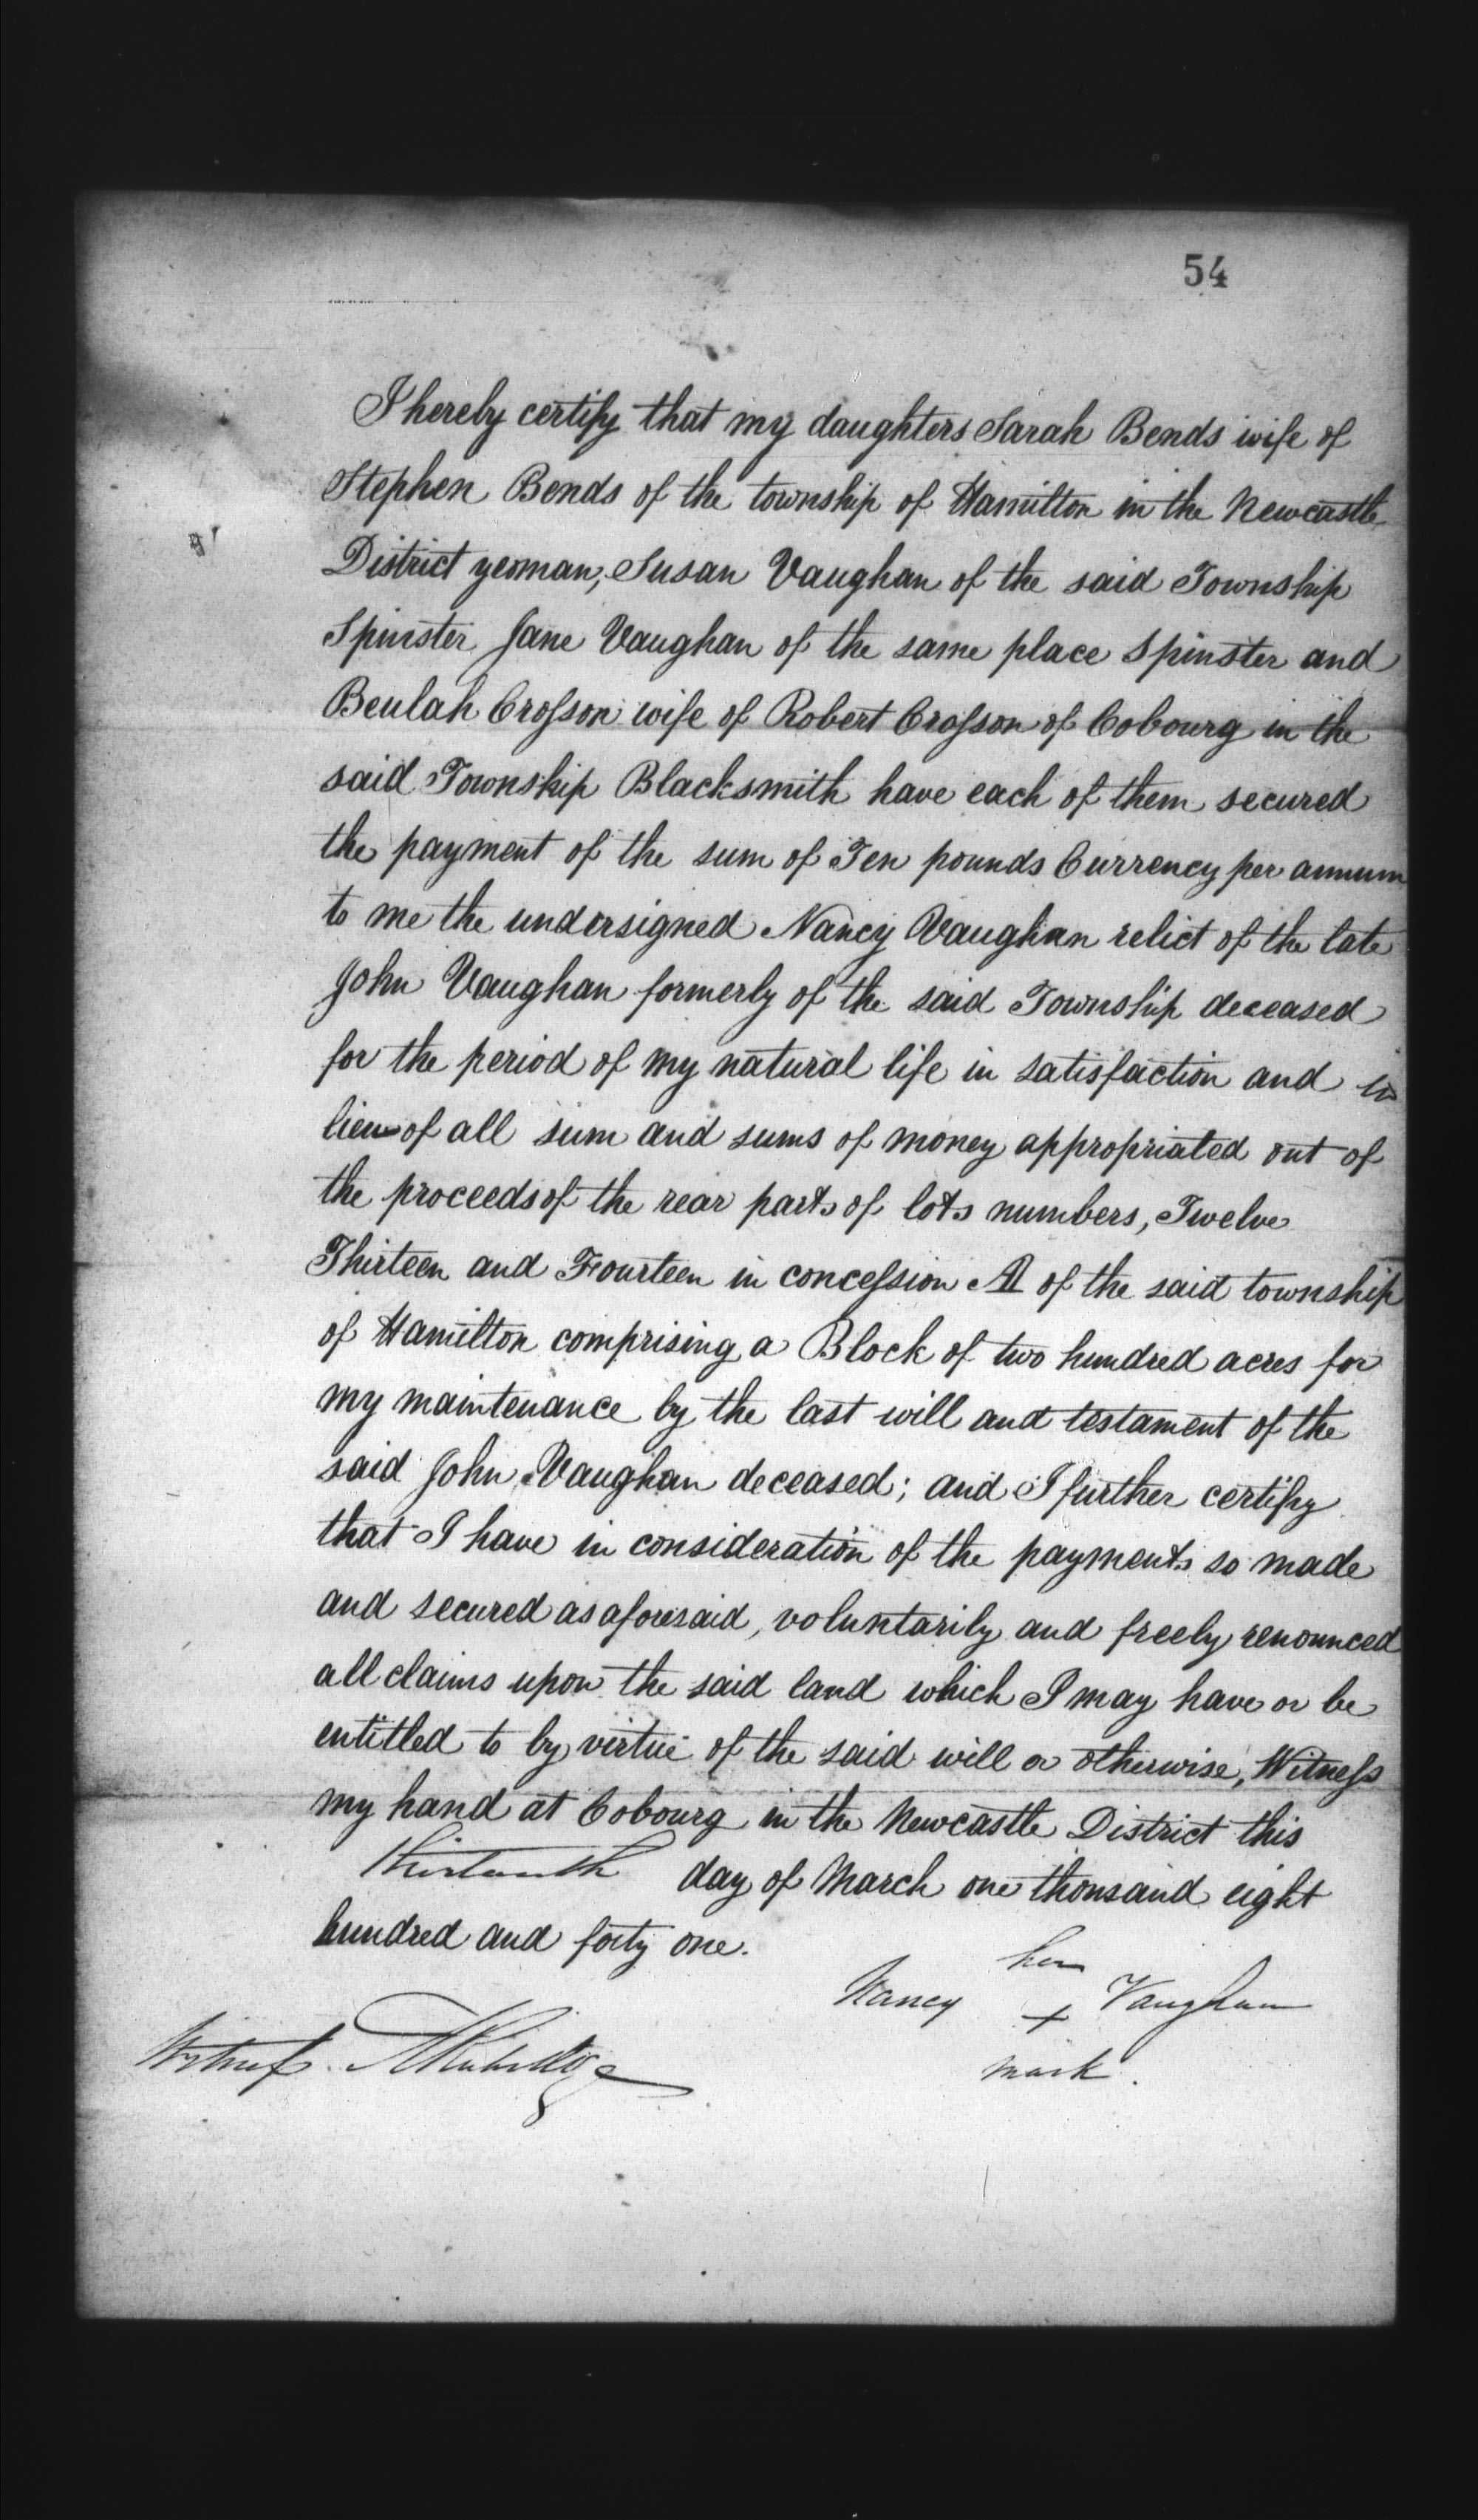 54
I hereby certify that my daughters Sarah Bends wife of
Stephen Bends of the township of Hamilton in the Newcastle
District yeoman, Susan Vaughan of the said Township
Spinster Jane Vaughan of the same place Spinster and
Beulah Croſson wife of Robert Croſson of Cobourg in the
said Township Blacksmith have each of them secured
the payment of the sum of Ten pounds Currency per annum
to me the undersigned Nancy Vaughan relict of the late
John Vaughan formerly of the said Township deceased
for the period of my natural life in satisfaction and in
lieu of all sum and sums of money appropriated out of
the proceeds of the rear parts of lots numbers, Twelve
Thirteen and Fourteen in conceſsion A of the said township
of Hamilton comprising a Block of two hundred acres for
my maintenance by the last will and testament of the
said John Vaughan deceased; and I further certify
that I have in consideration of the payments so made
and secured as aforesaid, voluntarily and freely renounced
all claims upon the said land which I may have or be
entitled to by virtue of the said will or otherwise, Witneſs
my hand at Cobourg in the Newcastle District this
thirteenth day of March one thousand eight
hundred and forty one.
her
Nancy + Vaughan
mark.
Witneſs.